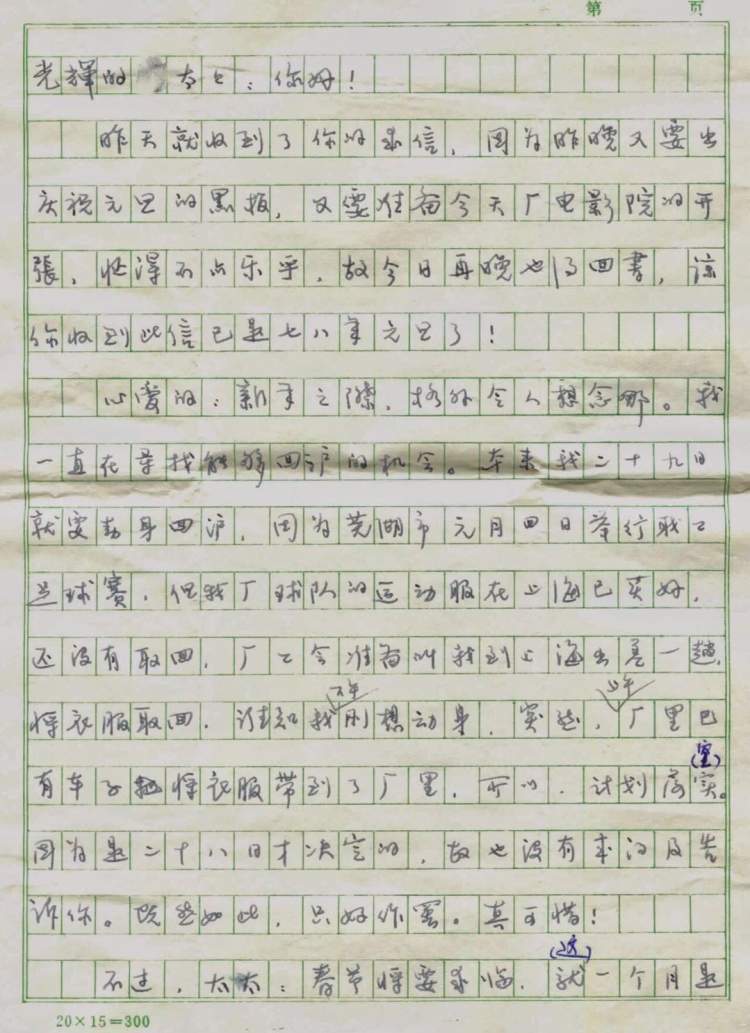 第 页
光輝的 太太：你好！
昨天就收到了你的来信，因为昨晚又要出
庆祝元旦的黑板，又要准备今天厂电影院的开
張，忙得不亦乐乎，故今日再晚也得回書，谅
你收到此信已是七八年元旦了！
心爱的：新年之際，格外令人想念哪。我
一直在寻找能够回沪的机会。本来我二十九日
就要动身回沪，因为芜湖市元月四日举行职工
足球赛，但我厂球队的运动服在上海已买好，
还没有取回，厂工会准备叫我到上海出差一趟，
下午 上午
将衣服取回。谁知我刚想动身，突然，厂里已
(空)
有车子 将衣服带到了厂里，所以，计划落实。
因为是二十八日才决定的，故也没有来得及告
诉你。既然如此，只好作罢。真可惜！
(这)
不过，太太：春节将要来临，就一个月是
20×15=300